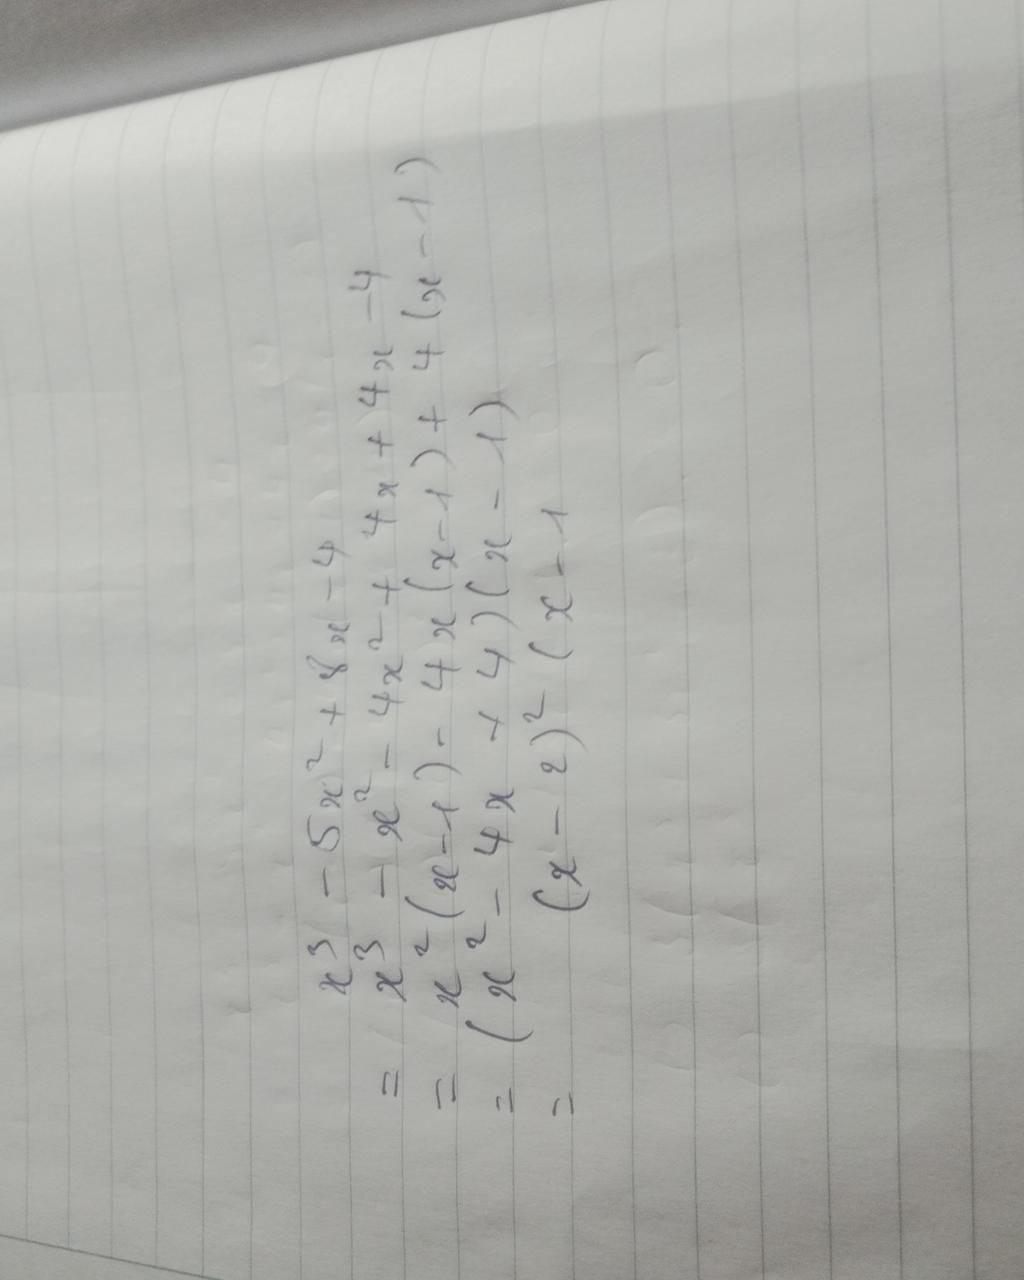 x³ - 5x² + 8x - 4
= x³ - x² - 4x² + 4x + 4x - 4
= x²(x-1) - 4x(x-1) + 4(x-1)
= (x² - 4x + 4)(x - 1)
= (x - 2)² (x - 1